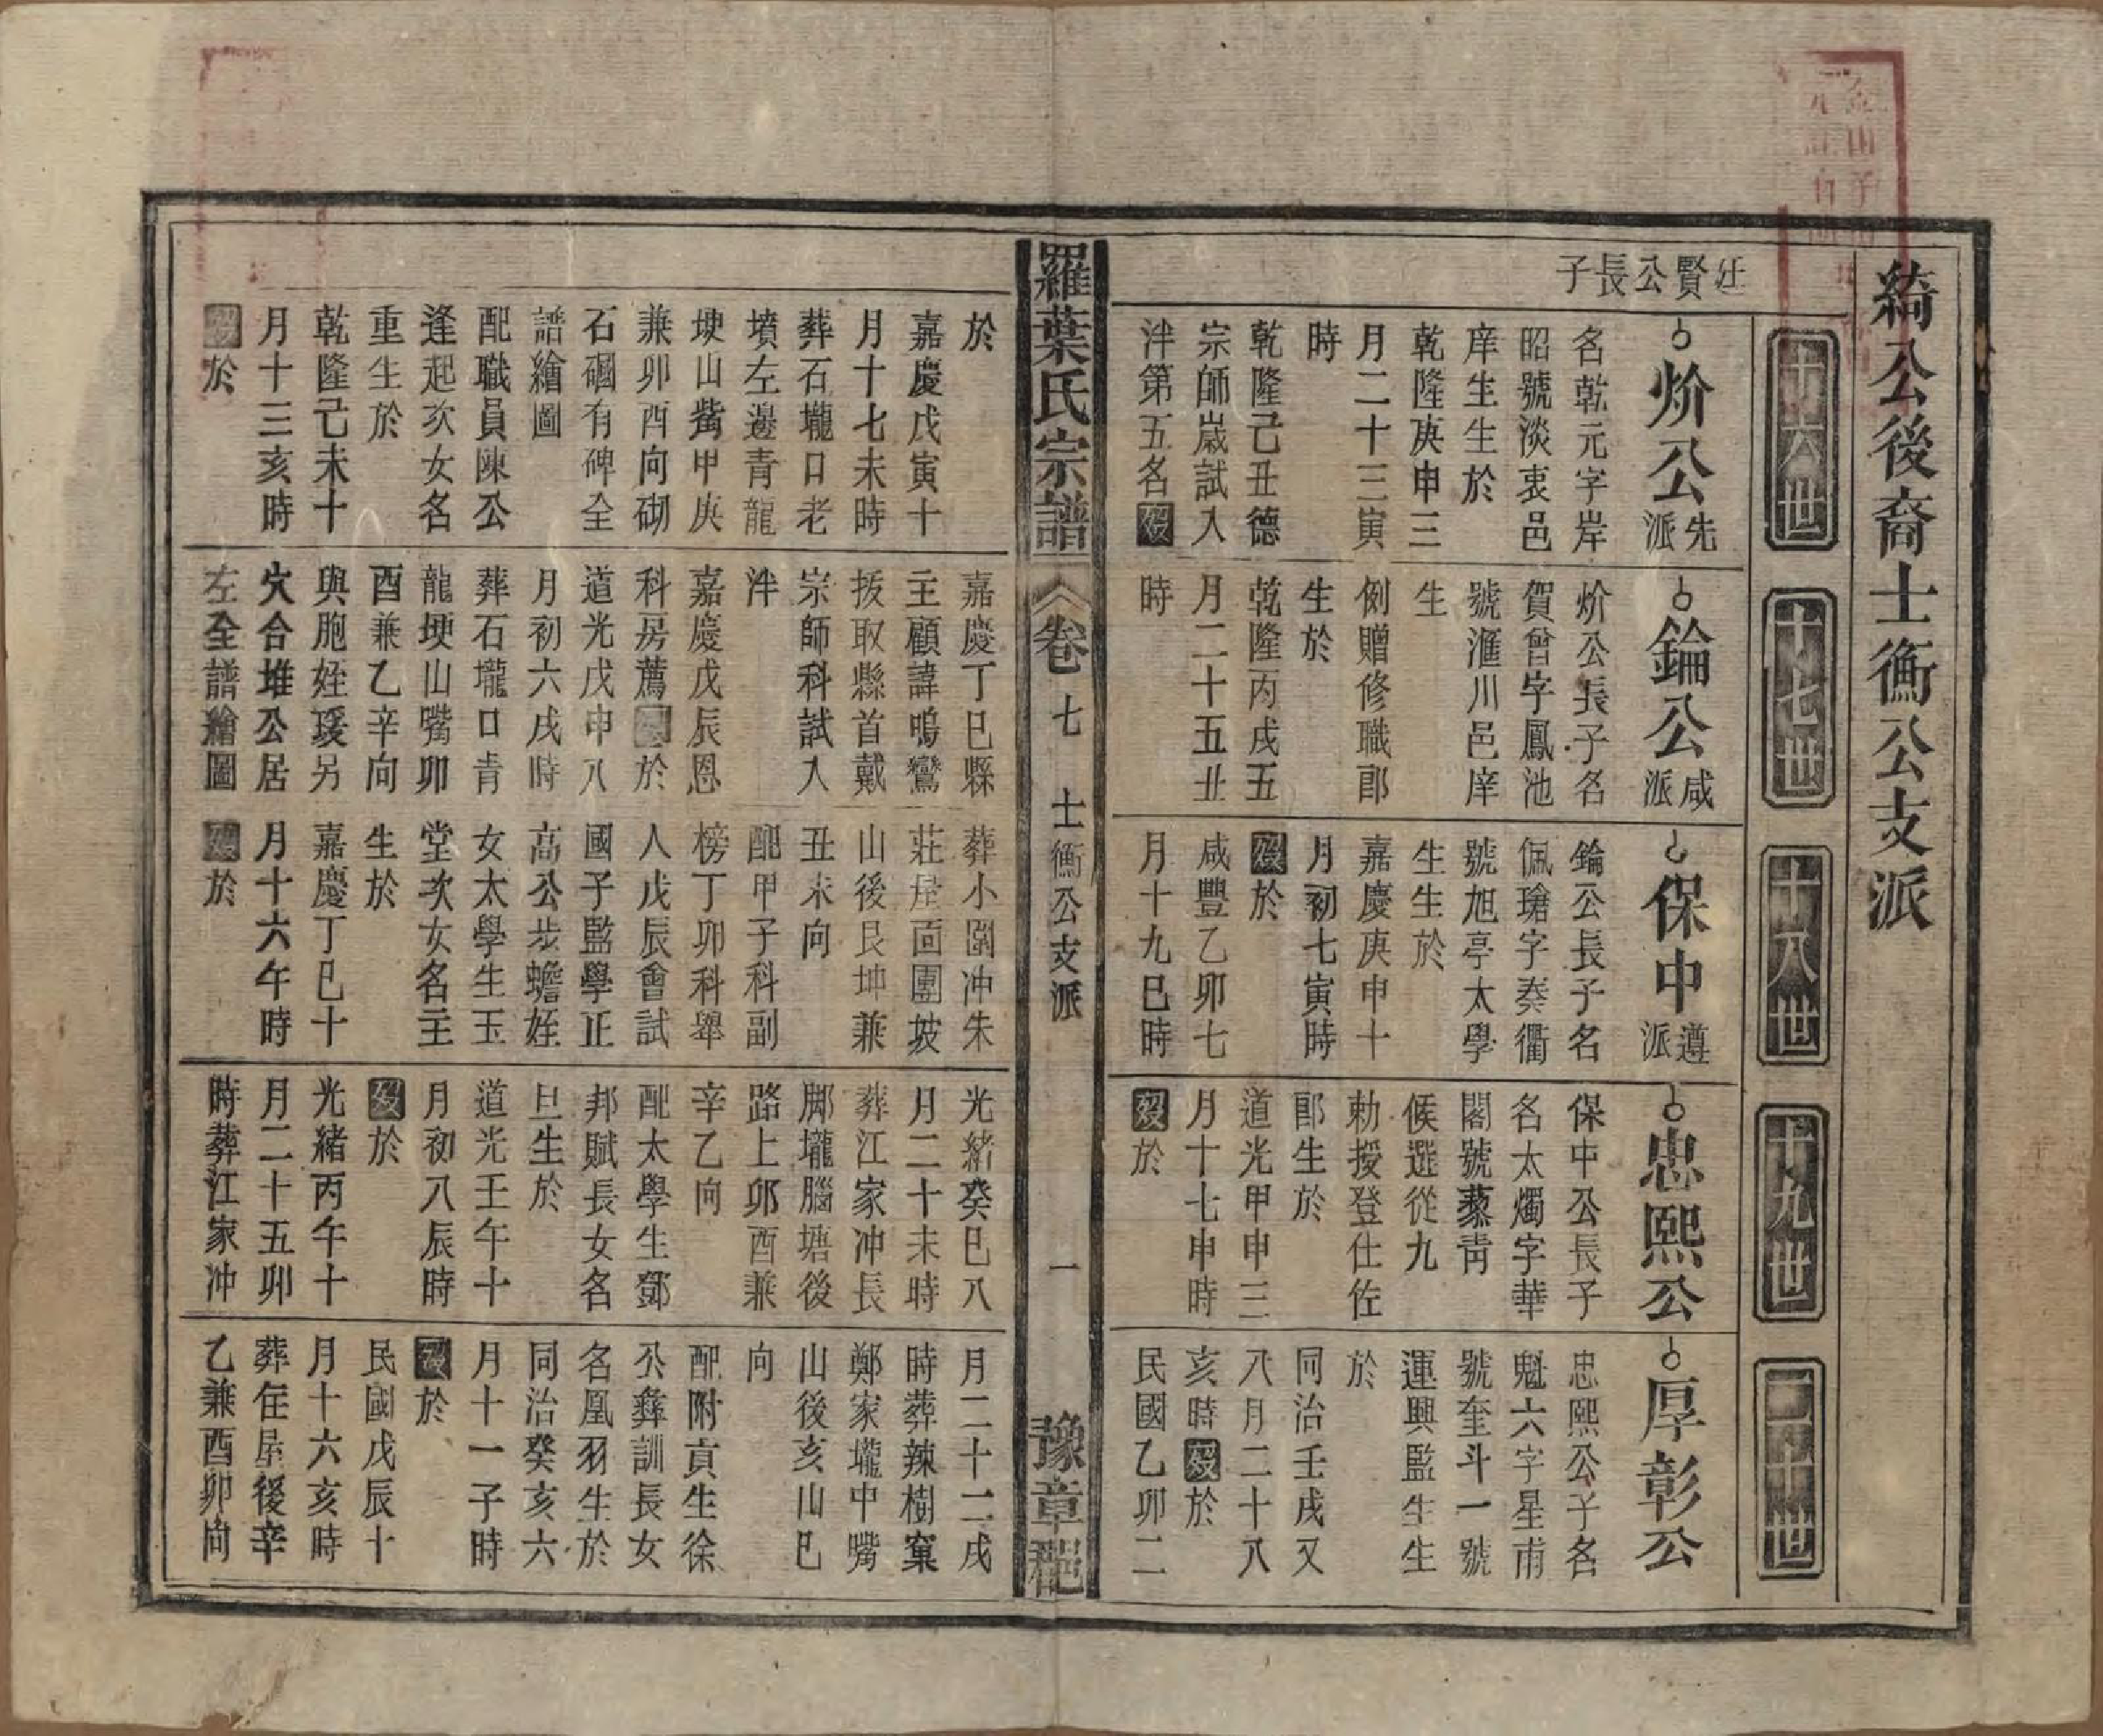 綺公後裔士衡公支派
十六世
十七世
十八世
十九世
二十世
廷賢公長子
炌公
先派
名乾元字岸
昭號淡衷邑
庠生生於
乾隆庚申三
月二十三寅
時
乾隆己丑德
宗師歲試入
泮第五名歿
錀公
咸派
炌公長子名
賀曾字鳳池
號滙川邑庠
生
例贈修職郎
生於
乾隆丙戌五
月二十五丑
時
保中
遵派
錀公長子名
佩瑲字奏衢
號旭亭太學
生生於
嘉慶庚申十
月初七寅時
歿於
咸豐乙卯七
月十九巳時
忠熙公
保中公長子
名太燭字華
閣號藜青
候選從九
勅授登仕佐
郎生於
道光甲申三
月十七申時
歿於
厚彰公
忠熙公子名
魁六字星甫
號奎斗一號
運興監生生
於
同治壬戌又
八月二十八
亥時歿於
民國乙卯二
羅葉氏宗譜
卷七 士衡公支派 一
豫章
於
嘉慶戊寅十
月十七未時
葬石壠口老
墳左邊青龍
塽山觜甲庚
兼卯酉向砌
石磖有碑全
譜繪圖
配職員陳公
逢起次女名
重生於
乾隆己未十
月十三亥時
歿於
嘉慶丁巳縣
主顧諱鳴鸞
拔取縣首戴
宗師科試入
泮
嘉慶戊辰恩
科房薦歿於
道光戊申八
月初六戌時
葬石壠口青
龍塽山嘴卯
酉兼乙辛向
與胞姪瑗另
穴合堆公居
左全譜繪圖
葬小園冲朱
莊屋面團坡
山後艮坤兼
丑未向
配甲子科副
榜丁卯科舉
人戊辰會試
國子監學正
高公步蟾姪
女太學生玉
堂次女名主
生於
嘉慶丁巳十
月十六午時
歿於
光緒癸巳八
月二十未時
葬江家冲長
脚壠腦塘後
路上卯酉兼
辛乙向
配太學生鄧
邦賦長女名
旦生於
道光壬午十
月初八辰時
歿於
光緒丙午十
月二十五卯
時葬江家冲
月二十二戌
時葬辣樹窠
鄭家壠中嘴
山後亥山巳
向
配附貢生徐
公彝訓長女
名凰羽生於
同治癸亥六
月十一子時
歿於
民國戊辰十
月十六亥時
葬在屋後辛
乙兼酉卯向